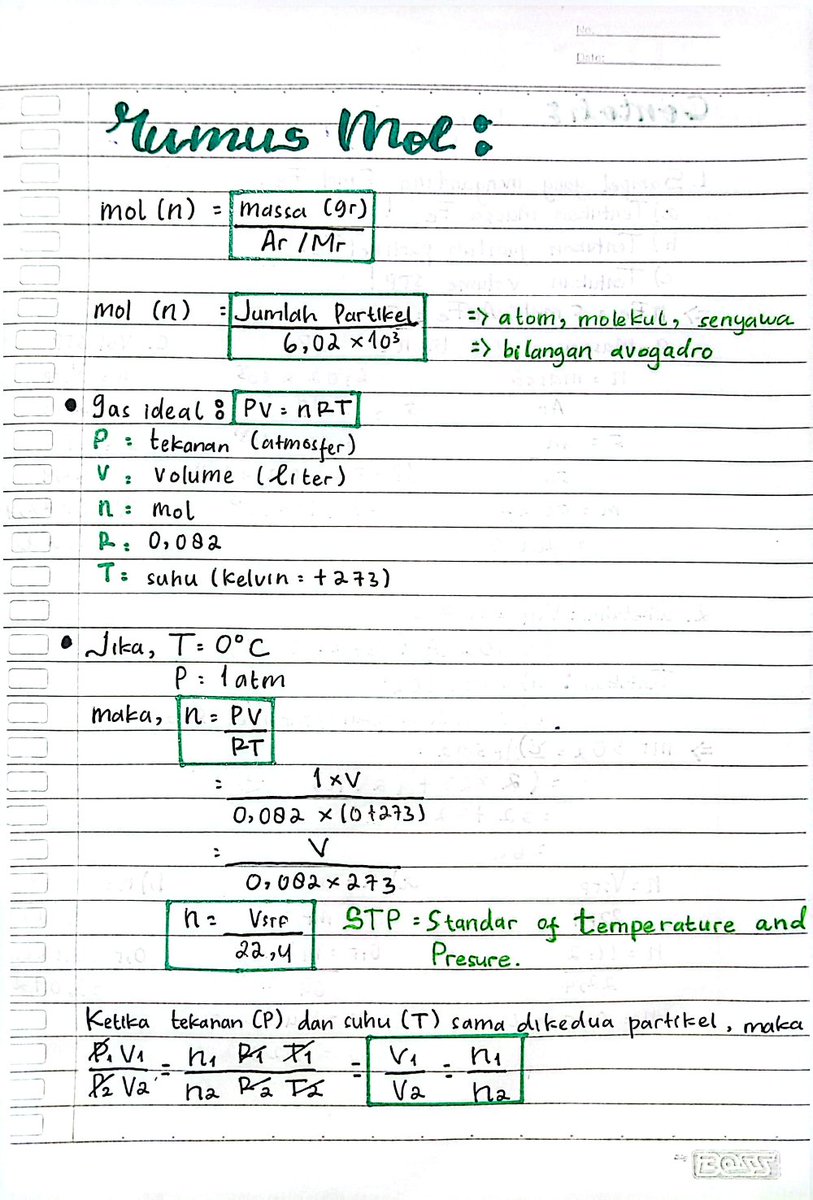 No:
Date:
Rumus Mol:
mol (n) = massa (gr)
Ar / Mr
mol (n) = Jumlah Partikel => atom, molekul, senyawa
6,02 × 10³ => bilangan avogadro
• gas ideal : PV = nRT
P = tekanan (atmosfer)
V = volume (liter)
n = mol
R = 0,082
T = suhu (kelvin = +273)
• Jika, T = 0°C
P = 1 atm
maka, n = PV
RT
= 1 × V
0,082 × (0+273)
= V
0,082 × 273
n = VSTP STP = Standar of temperature and
22,4 Presure.
Ketika tekanan (P) dan suhu (T) sama dikedua partikel, maka
P₁ V₁ = n₁ R₁ T₁ = V₁ = n₁
P₂ V₂ n₂ R₂ T₂ V₂ n₂